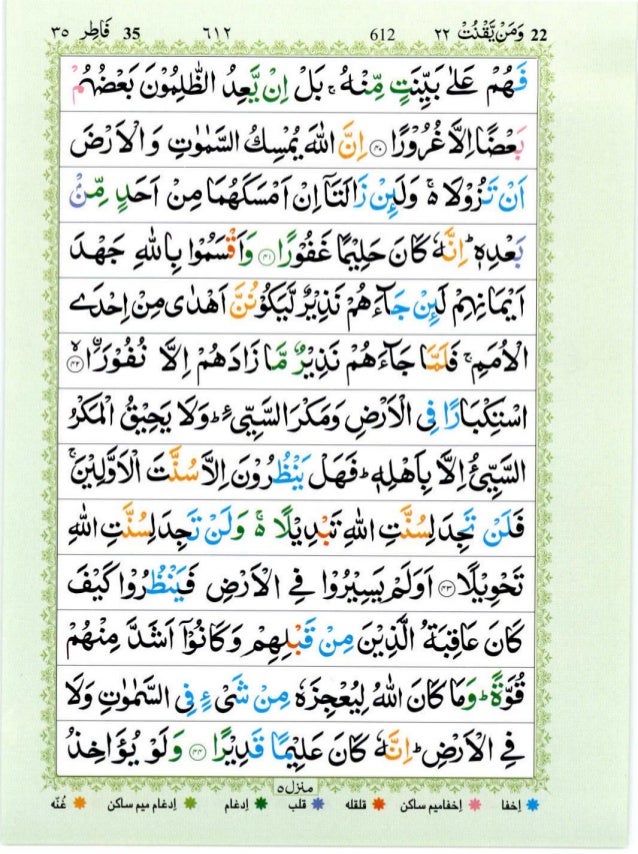 ٣٥ فَاطِر 35 ٦١٢ 612 ٢٢ وَمَنْ يَّقْنُتْ 22
فَهُمْ عَلٰى بَيِّنَتٍ مِّنْهُ ۚ بَلْ اِنْ يَّعِدُ الظّٰلِمُوْنَ بَعْضُهُمْ
بَعْضًا اِلَّا غُرُوْرًا ﴿۴۰﴾ اِنَّ اللّٰهَ يُمْسِكُ السَّمٰوٰتِ وَالْاَرْضَ
اَنْ تَزُوْلَا ۚ وَلَئِنْ زَالَتَاۤ اِنْ اَمْسَكَهُمَا مِنْ اَحَدٍ مِّنْۢ
بَعْدِهٖ ؕ اِنَّهٗ كَانَ حَلِيْمًا غَفُوْرًا ﴿۴۱﴾ وَاَقْسَمُوْا بِاللّٰهِ جَهْدَ
اَيْمَانِهِمْ لَئِنْ جَآءَهُمْ نَذِيْرٌ لَّيَكُوْنُنَّ اَهْدٰى مِنْ اِحْدَى
الْاُمَمِ ۚ فَلَمَّا جَآءَهُمْ نَذِيْرٌ مَّا زَادَهُمْ اِلَّا نُفُوْرَا ﴿۴۲﴾
اسْتِكْبَارًا فِى الْاَرْضِ وَمَكْرَ السَّيِّئِ ؕ وَلَا يَحِيْقُ الْمَكْرُ
السَّيِّئُ اِلَّا بِاَهْلِهٖ ؕ فَهَلْ يَنْظُرُوْنَ اِلَّا سُنَّتَ الْاَوَّلِيْنَ ۚ
فَلَنْ تَجِدَ لِسُنَّتِ اللّٰهِ تَبْدِيْلًا ۚ وَلَنْ تَجِدَ لِسُنَّتِ اللّٰهِ
تَحْوِيْلًا ﴿۴۳﴾ اَوَلَمْ يَسِيْرُوْا فِى الْاَرْضِ فَيَنْظُرُوْا كَيْفَ
كَانَ عَاقِبَةُ الَّذِيْنَ مِنْ قَبْلِهِمْ وَكَانُوْۤا اَشَدَّ مِنْهُمْ
قُوَّةً ؕ وَمَا كَانَ اللّٰهُ لِيُعْجِزَهٗ مِنْ شَىْءٍ فِى السَّمٰوٰتِ وَلَا
فِى الْاَرْضِ ؕ اِنَّهٗ كَانَ عَلِيْمًا قَدِيْرًا ﴿۴۴﴾ وَلَوْ يُؤَاخِذُ
منزل ٥
اِخفا اِخفامیم ساکن قلقله قلب اِدغام اِدغام میم ساکن غُنّه